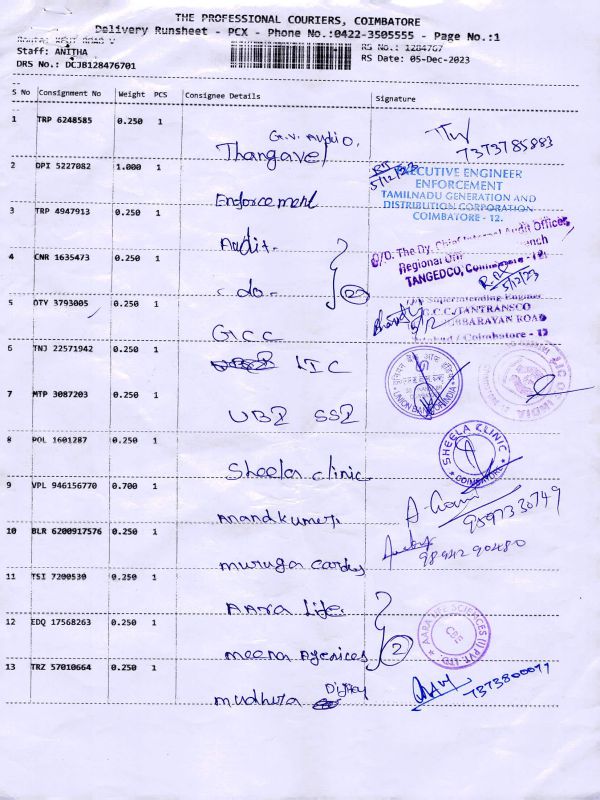 THE PROFESSIONAL COURIERS, COIMBATORE
Delivery Runsheet - PCX - Phone No.:0422-3505555 - Page No.:1
Staff: ANITHA
RS No.: 1284767
DRS No.: DCJB128476701
RS Date: 05-Dec-2023
S No Consignment No Weight PCS Consignee Details Signature
1 TRP 6248585 0.250 1 Thangavel G.V. Audio 7373785883
2 DPI 5227082 1.000 1 Enforcement
5/12/23
EXECUTIVE ENGINEER
ENFORCEMENT
TAMILNADU GENERATION AND
DISTRIBUTION CORPORATION
COIMBATORE - 12.
3 TRP 4947913 0.250 1 Audit
O/O. The Dy. Chief Internal Audit Officer
Regional
TANGEDCO, Coimbatore - 12
4 CNR 1635473 0.250 1 do 2
5/12/23
5 DTY 3793005 0.250 1 GCC
Superintending Engineer
G.C.C./TANTRANSCO
Coimbatore - 12
6 TNJ 22571942 0.250 1 LIC
UNION BANK OF INDIA
LIC OF INDIA
7 MTP 3087203 0.250 1 UBI SSI
8 POL 1601287 0.250 1 Sheela clinic
SHEELA CLINIC
COIMBATORE
9 VPL 946156770 0.700 1 Anandkumar
9597330749
10 BLR 6200917576 0.250 1 muruga cards
9894290480
11 TSI 7200530 0.250 1 AARA Life
12 EDQ 17568263 0.250 1 meena Agenices 2
AARA LIFE SCIENCES (I) PVT. LTD.
CBE
13 TRZ 57010664 0.250 1 mudhra
7373800077